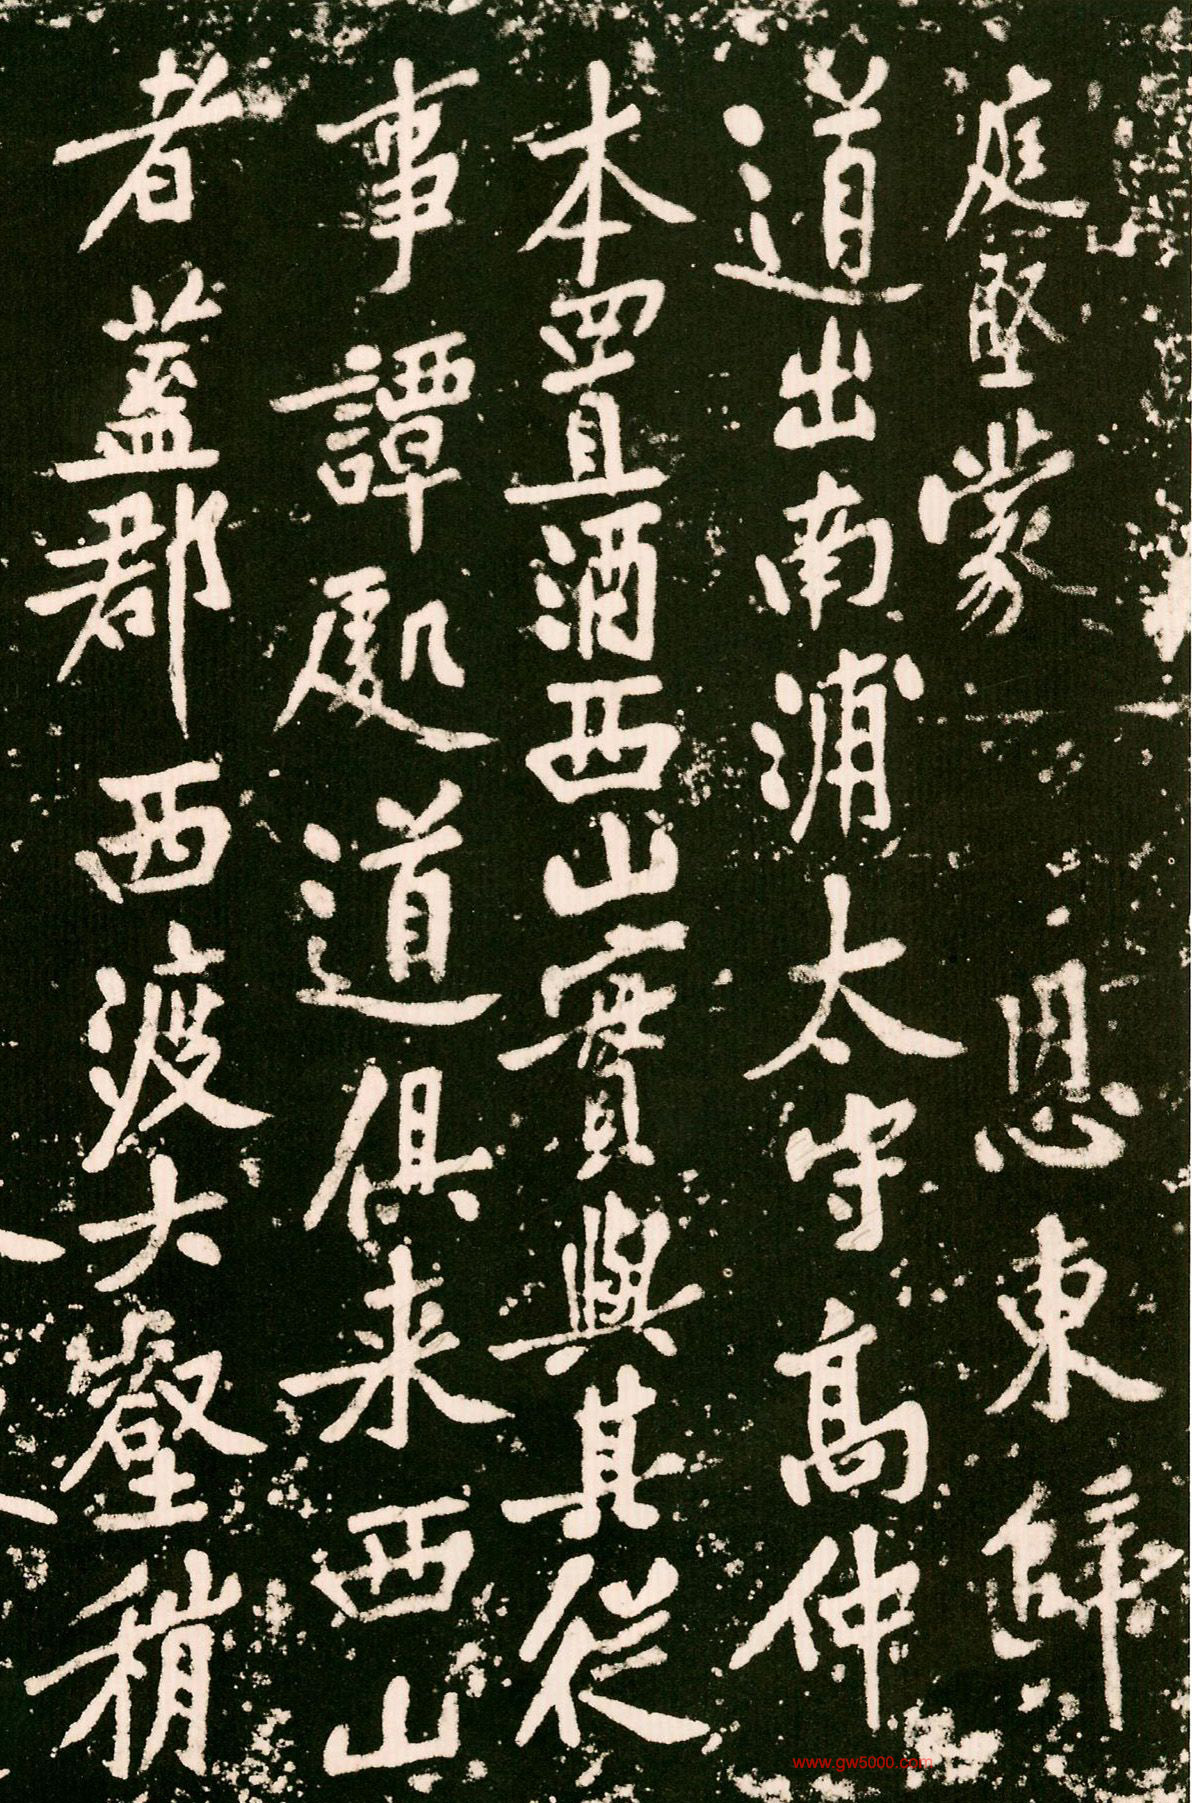 庭堅蒙恩東歸
道出南浦太守高仲
本置酒西山實與其從
事譚處道俱来西山
者蓋郡西渡大壑稍
www.gw5000.com